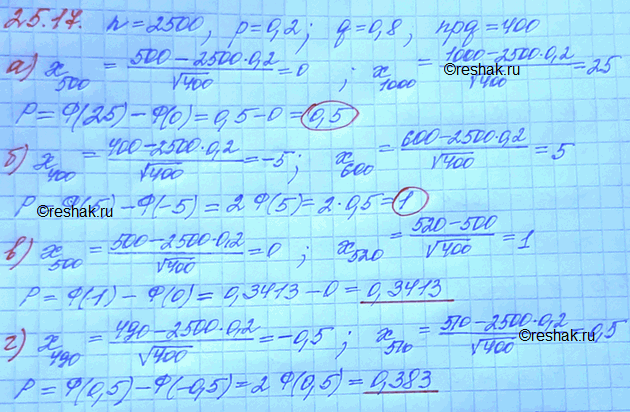 25.17. n=2500, p=0,2; q=0,8, npq=400
а) x₅₀₀ = (500-2500·0,2)/√400 = 0 ; x₁₀₀₀ = (1000-2500·0,2)/√400 = 25
©reshak.ru
©reshak.ru
P = Ф(25) - Ф(0) = 0,5 - 0 = 0,5
б) x₄₀₀ = (400-2500·0,2)/√400 = -5 ; x₆₀₀ = (600-2500·0,2)/√400 = 5
P = Ф(5) - Ф(-5) = 2Ф(5) = 2·0,5 = 1
©reshak.ru
©reshak.ru
в) x₅₀₀ = (500-2500·0,2)/√400 = 0 ; x₅₂₀ = (520-500)/√400 = 1
P = Ф(1) - Ф(0) = 0,3413 - 0 = 0,3413
г) x₄₉₀ = (490-2500·0,2)/√400 = -0,5 ; x₅₁₀ = (510-2500·0,2)/√400 = 0,5
©reshak.ru
P = Ф(0,5) - Ф(-0,5) = 2Ф(0,5) = 0,383